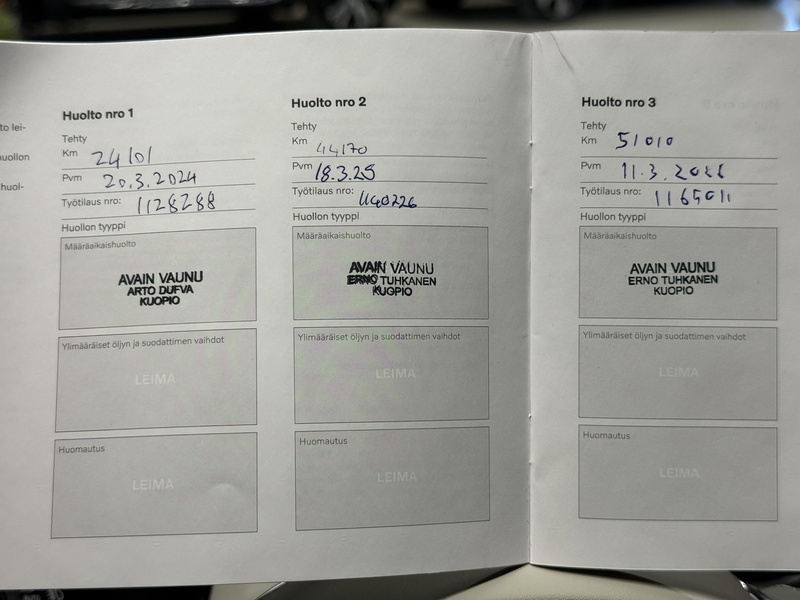 to lei-
uollon
huol-
Huolto nro 1
Tehty
Km 24101
Pvm 20.3.2024
Työtilaus nro: 1128288
Huollon tyyppi
Määräaikaishuolto
AVAIN VAUNU
ARTO DUFVA
KUOPIO
Ylimääräiset öljyn ja suodattimen vaihdot
LEIMA
Huomautus
LEIMA
Huolto nro 2
Tehty
Km 44170
Pvm 18.3.25
Työtilaus nro: 1140226
Huollon tyyppi
Määräaikaishuolto
AVAIN VAUNU
ERNO TUHKANEN
KUOPIO
Ylimääräiset öljyn ja suodattimen vaihdot
LEIMA
Huomautus
LEIMA
Huolto nro 3
Tehty
Km 51010
Pvm 11.3.2026
Työtilaus nro:
Huollon tyyppi
Määräaikaishuolto
AVAIN VAUNU
ERNO TUHKANEN
KUOPIO
Ylimääräiset öljyn ja suodattimen vaihdot
LEIMA
Huomautus
LEIMA